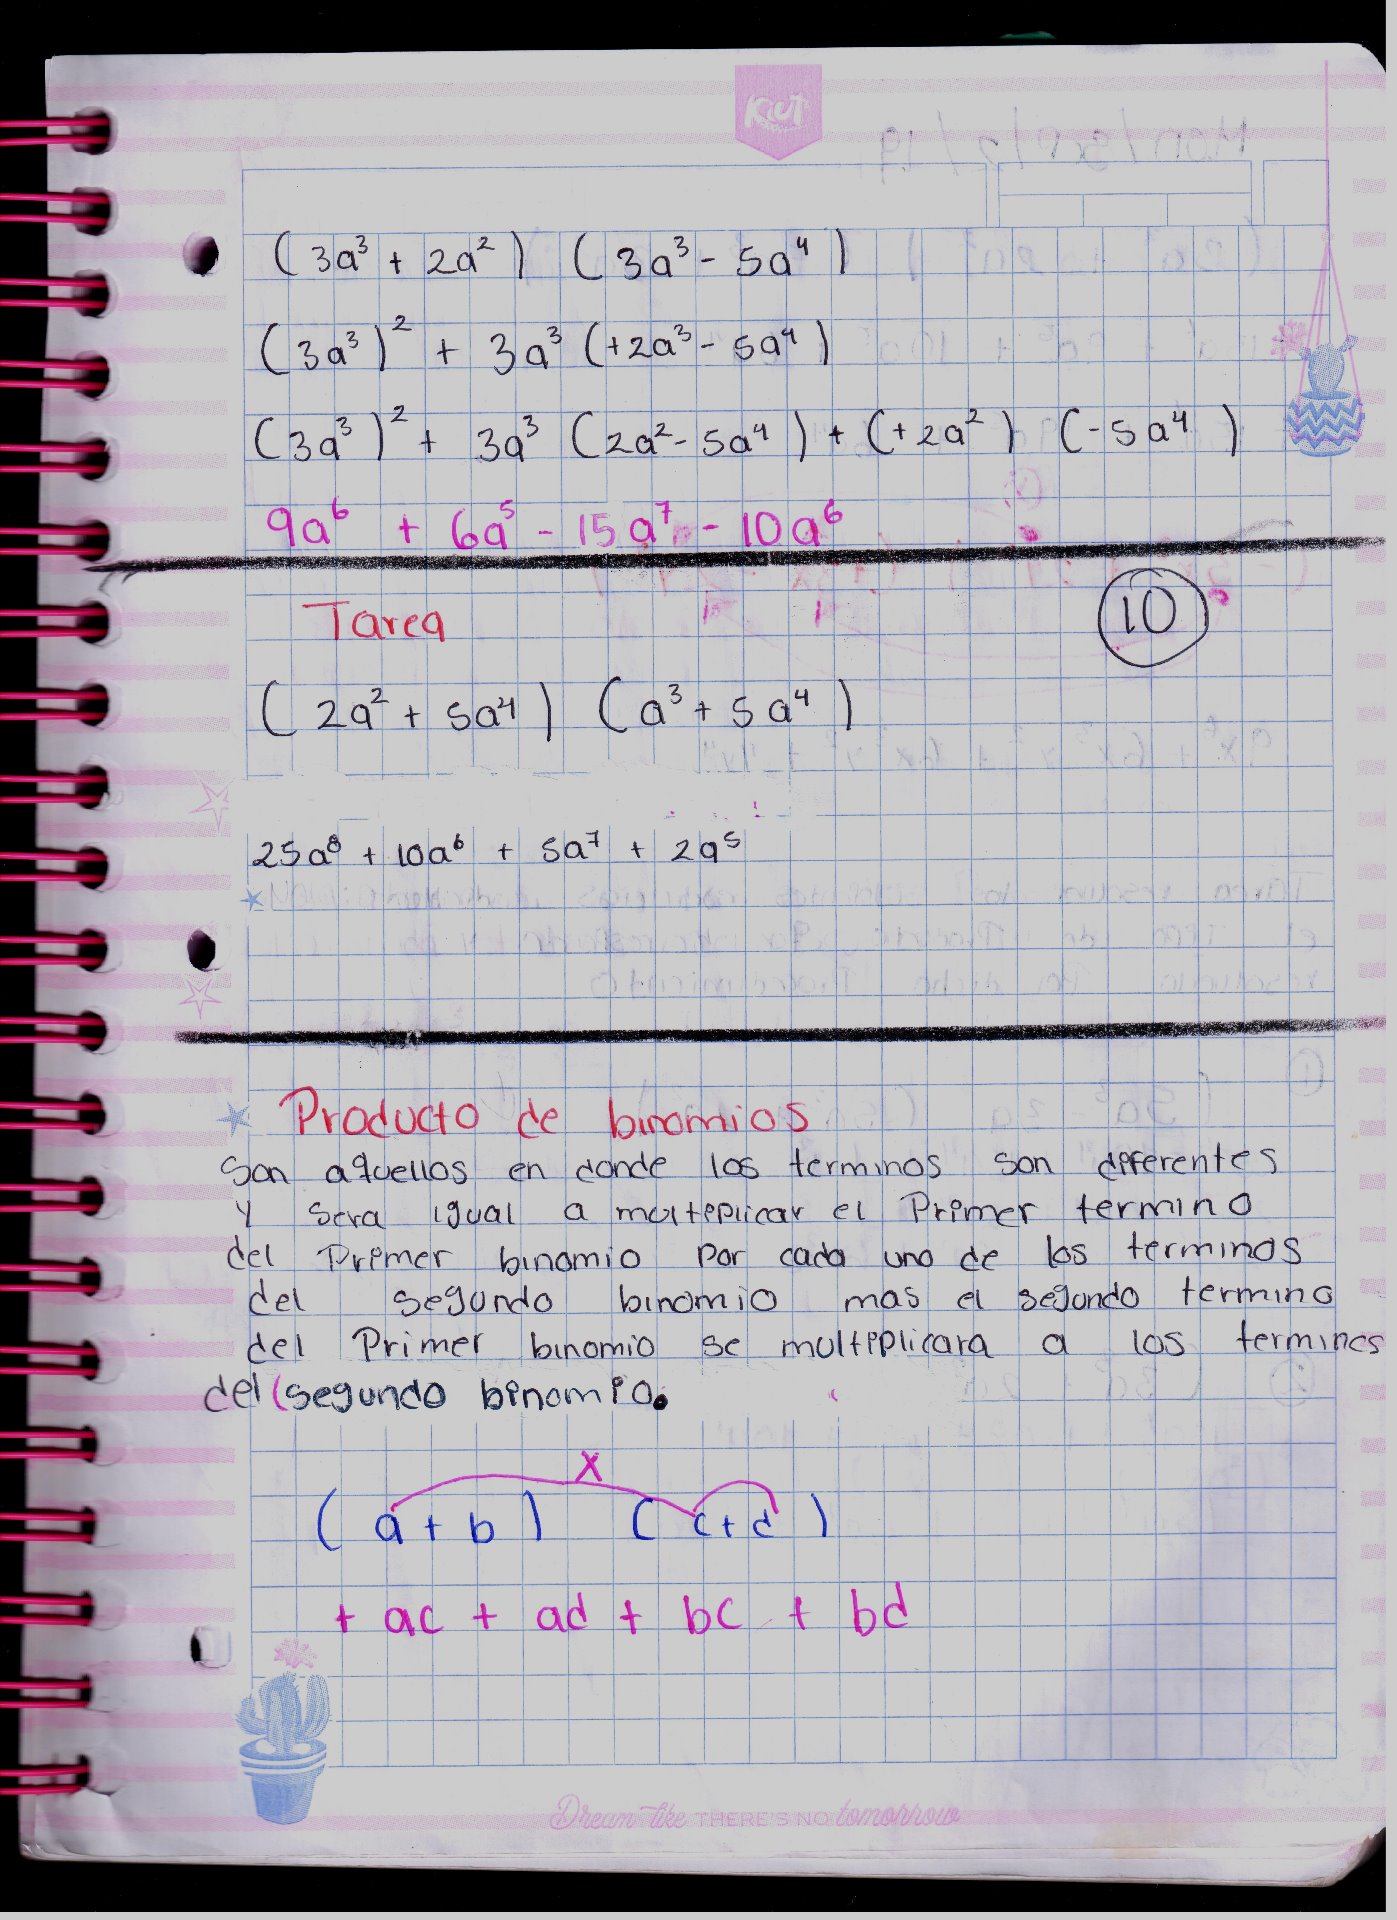 Kiut
(3a³ + 2a²) (3a³ - 5a⁴)
(3a³)² + 3a³ (+2a³ - 5a⁴)
(3a³)² + 3a³ (2a² - 5a⁴) + (+2a²) (-5a⁴)
9a⁶ + 6a⁵ - 15a⁷ - 10a⁶
Tarea
10
(2a² + 5a⁴) (a³ + 5a⁴)
25a⁸ + 10a⁶ + 5a⁷ + 2a⁵
Producto de binomios
Son aquellos en donde los terminos son diferentes
y sera igual a multiplicar el Primer termino
del Primer binomio por cada uno de los terminos
del segundo binomio mas el segundo termino
del Primer binomio se multiplicara a los terminos
del (segundo binomio.
x
(a + b) (c + d)
+ ac + ad + bc + bd
Dream like THERE'S NO tomorrow